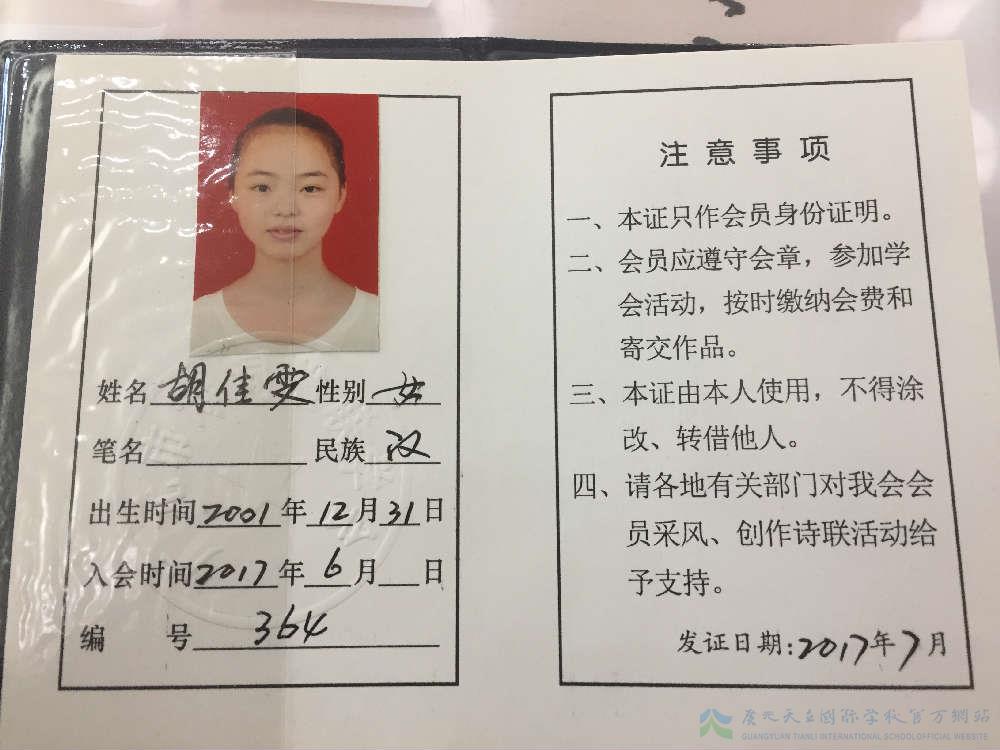 姓名 胡佳雯 性别 女
笔名 民族 汉
出生时间 2001 年 12 月 31 日
入会时间 2017 年 6 月 日
编 号 364
注意事项
一、本证只作会员身份证明。
二、会员应遵守会章，参加学
会活动，按时缴纳会费和
寄交作品。
三、本证由本人使用，不得涂
改、转借他人。
四、请各地有关部门对我会会
员采风、创作诗联活动给
予支持。
发证日期:2017年7月
广元天立国际学校官方網站
GUANGYUAN TIANLI INTERNATIONAL SCHOOL OFFICIAL WEBSITE